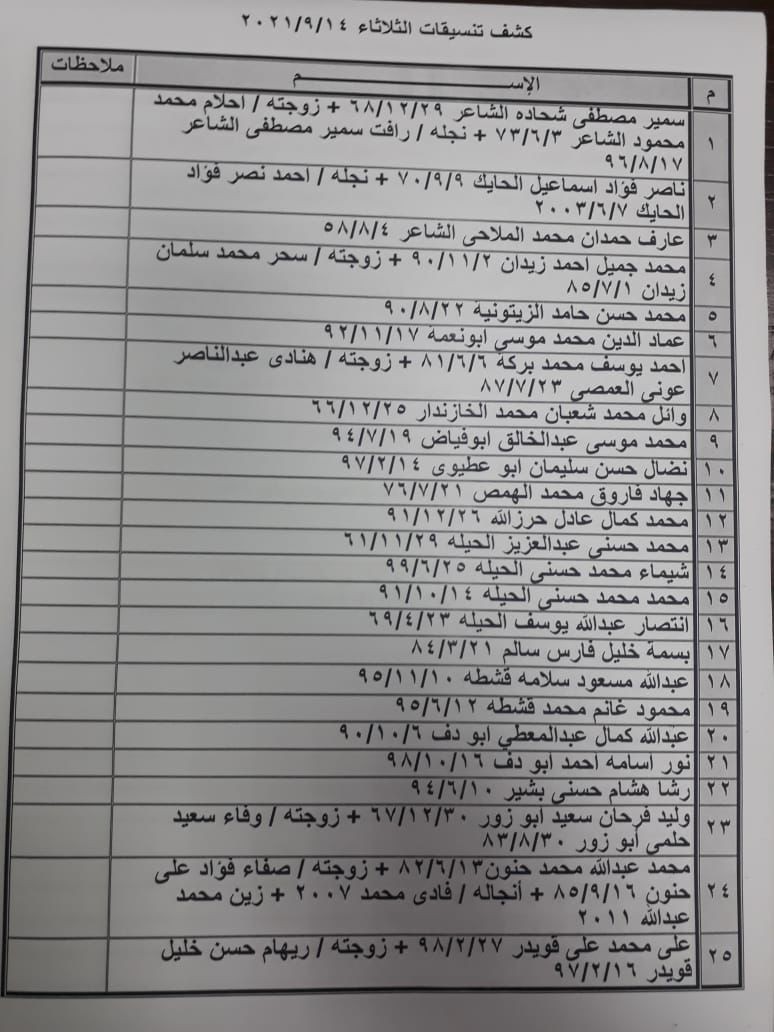 كشف تنسيقات الثلاثاء ٢٠٢١/٩/١٤
م الإســـــــــم ملاحظات
١ سمير مصطفى شحاده الشاعر ٦٨/١٢/٢٩ + زوجته / احلام محمد
محمود الشاعر ٧٣/٦/٣ + نجله / رافت سمير مصطفى الشاعر
٩٦/٨/١٧
٢ ناصر فؤاد اسماعيل الحايك ٧٠/٩/٩ + نجله / احمد نصر فؤاد
الحايك ٢٠٠٣/٦/٧
٣ عارف حمدان محمد الملاحى الشاعر ٥٨/٨/٤
٤ محمد جميل احمد زيدان ٩٠/١١/٢ + زوجته / سحر محمد سلمان
زيدان ٨٥/٧/١
٥ محمد حسن حامد الزيتونية ٩٠/٨/٢٢
٦ عماد الدين محمد موسي ابونعمة ٩٢/١١/١٧
٧ احمد يوسف محمد بركة ٨١/٦/٦ + زوجته / هنادى عبدالناصر
عوني العمصي ٨٧/٧/٢٣
٨ وائل محمد شعبان محمد الخازندار ٦٦/١٢/٢٥
٩ محمد موسى عبدالخالق ابوفياض ٩٤/٧/١٩
١٠ نضال حسن سليمان ابو عطيوى ٩٧/٢/١٤
١١ جهاد فاروق محمد الهمص ٧٦/٧/٢١
١٢ محمد كمال عادل حرزالله ٩١/١٢/٢٦
١٣ محمد حسنى عبدالعزيز الحيله ٦١/١١/٢٩
١٤ شيماء محمد حسنى الحيله ٩٩/٦/٢٥
١٥ محمد محمد حسنى الحيله ٩١/١٠/١٤
١٦ انتصار عبدالله يوسف الحيله ٦٩/٤/٢٣
١٧ بسمة خليل فارس سالم ٨٤/٣/٢١
١٨ عبدالله مسعود سلامه قشطه ٩٥/١١/١٠
١٩ محمود غانم محمد قشطه ٩٥/٦/١٢
٢٠ عبدالله كمال عبدالمعطي ابو دف ٩٠/١٠/٦
٢١ نور اسامه احمد ابو دف ٩٨/١٠/١٦
٢٢ رشا هشام حسنى بشير ٩٤/٦/١٠
٢٣ وليد فرحان سعيد أبو زور ٦٧/١٢/٣٠ + زوجته / وفاء سعيد
حلمى أبو زور ٨٣/٨/٣٠
٢٤ محمد عبدالله محمد حنون٨٢/٦/١٣ + زوجته / صفاء فؤاد على
حنون ٨٥/٩/١٦ + أنجاله / فادى محمد ٢٠٠٧ + زين محمد
عبدالله ٢٠١١
٢٥ على محمد على قويدر ٩٨/٢/٢٧ + زوجته / ريهام حسن خليل
قويدر ٩٧/٢/١٦